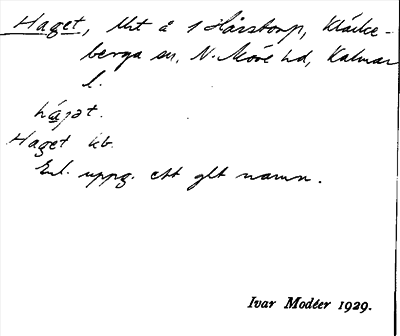 Haget, lht å 1 Hårstorp, Kläcke-
berga sn, N. Möre hd, Kalmar
l.
hágət.
Haget kb.
Enl. uppg. ett glt namn.
Ivar Modéer 1929.